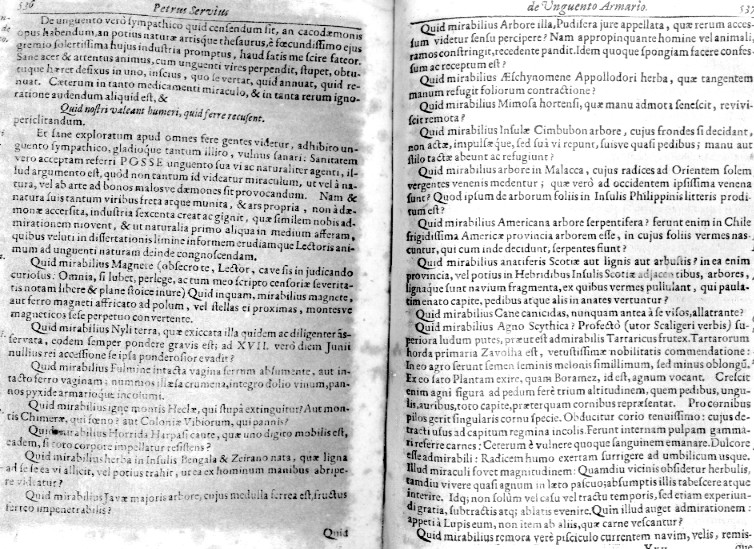 536 Petrus Servius
De unguento verò sympathico quid censendum sit, an cacodæmonis
opus habendum, an potius naturæ artisque thesaurus, è fœcundissimo ejus
gremio solertissima hujus industria promptus, haud satis me scire fateor.
Sane acer & attentus animus, cum unguenti vires perpendit, stupet, obtu-
tuque hæret defixus in uno, inscius, quo se vertat, quid annuat, quid re-
nuat. Cæterum in tanto medicamenti miraculo, & in tanta rerum igno-
ratione audendum aliquid est, &
Quid nostri valeant humeri, quid ferre recusent.
periclitandum.
Et sane exploratum apud omnes fere gentes videtur, adhibito un-
guento sympathico, gladioque tantum illito, vulnus sanari: Sanitatem
vero acceptam referri POSSE unguento sua vi ac naturaliter agenti, il-
lud argumento est, quòd non tantum id videatur miraculum, ut vel à na-
tura, vel ab arte ad bonos malosve dæmones sit provocandum. Nam &
natura suis tantum viribus freta atque munita, & ars propria, non à dæ-
monæ accersita, industria sexcenta creat ac gignit, quæ similem nobis ad-
mirationem movent, & ut naturalia primo aliqua in medium afferam,
quibus veluti in dissertationis limine informem erudiamque Lectoris ani-
mum ad unguenti naturam deinde cognoscendam.
Quid mirabilius Magnete (obsecro te, Lector, cave sis in judicando
curiosus. Omnia, si lubet, perlege, ac tum meo scripto censoriæ severita-
tis notam libere & plane stoice inure) Quid inquam, mirabilius magnete,
aut ferro magneti affricato ad polum, vel stellas ei proximas, montesve
magneticos sese perpetuo convertente.
Quid mirabilius Nyli terra, quæ exiccata illa quidem ac diligenter as-
servata, eodem semper pondere gravis est; ad XVII. verò diem Junii
nullius rei accessione se ipsa ponderosior evadit?
Quid mirabilius Fulmine intacta vagina ferrum absumente, aut in-
tacto ferro vaginam; nummos illæsa crumena, integro dolio vinum, pan-
nos pyxide armarioque incolumi.
Quid mirabilius igne montis Heclæ, qui stupa extinguitur? Aut mon-
tis Chimeræ, qui fœno? aut Coloniæ Vibiorum, qui pannis?
Quid mirabilius Horrida Harpasi caute, quæ uno digito mobilis est,
eadem, si toto corpore impellatur resistens?
Quid mirabilius herba in Insulis Bengala & Zeirano nata, quæ ligna
ad se sea vi allicit, vel potius trahit, ut ea ex hominum manibus abripe-
re videatur?
Quid mirabilius Javæ majoris arbore, cujus medulla ferrea est, fructus
ferreo impenetrabilis?
Quid
de Unguento Armario. 537
Quid mirabilius Arbore illa, Pudifera jure appellata, quæ rerum acces-
sum videtur sensu percipere? Nam appropinquante homine vel animali,
ramos constringit, recedente pandit. Idem quoque spongiam facere confes-
sum ac receptum est?
Quid mirabilius Æschynomene Appollodori herba, quæ tangentem
manum refugit foliorum contractione?
Quid mirabilius Mimosa hortensi, quæ manu admota senescit, revivi-
scit remota?
Quid mirabilius Insulæ Cimbubon arbore, cujus frondes si decidant,
non actæ, impulsæque, sed sui vi repunt, suisve quasi pedibus; manu aut
stilo tactæ abeunt ac refugiunt?
Quid mirabilius arbore in Malacca, cujus radices ad Orientem solem
vergentes venenis medentur; quæ verò ad occidentem ipsissima venena
sunt? Quod ipsum de arborum foliis in Insulis Philippinis litteris prodi-
tum est?
Quid mirabilius Americana arbore serpentifera? ferunt enim in Chile
frigidissima Americæ provincia arborem esse, in cujus foliis vermes nas-
cuntur, qui cum inde decidunt, serpentes fiunt?
Quid mirabilius anatiferis Scotiæ aut lignis aut arbustis? in ea enim
provincia, vel potius in Hebridibus Insulis Scotiæ adjacentibus, arbores,
lignaque sunt navium fragmenta, ex quibus vermes pullulant, qui paula-
tim enato capite, pedibus atque alis in anates vertuntur?
Quid mirabilius Cane canicidas, nunquam antea à se visos, allatrante?
Quid mirabilius Agno Scythica? Profectò (utor Scaligeri verbis) su-
periora ludum putes, præut est admirabilis Tartaricus frutex. Tartarorum
horda primaria Zavolha est, vetustissimæ nobilitatis commendatione:
In eo agro serunt semen leminis melonis simillimum, sed minus oblongũ.
Ex eo sato Plantam exire, quam Boramez, id est, agnum vocant. Crescit
enim agni figura ad pedum ferè trium altitudinem, quem pedibus, ungu-
lis, auribus, toto capite, præterquam cornibus repræsentat. Pro cornibus
pilos gerit singularis cornu specie. Obducitur corio tenuissimo: cujus de-
tracti usus ad capitum regmina incolis. Ferunt internam pulpam gamma-
ri referre carnes: Cæterum è vulnere quoque sanguinem emanare. Dulcore
esse admirabili: Radicem humo exertam surrigere ad umbilicum usque.
Illud miraculi fovet magnitudinem: Quamdiu vicinis obsidetur herbulis,
tamdiu vivere quasi agnum in læto pascuo; absumptis illis tabescere atque
interire. Idq; non solùm vel casu vel tractu temporis, sed etiam experiun-
di gratia, subtractis atq; ablatis evenire. Quin illud auget admirationem:
appeti à Lupis eum, non item ab aliis, quæ carne vescantur?
Quid mirabilius remora verè pisciculo currentem navim, velis, remis-